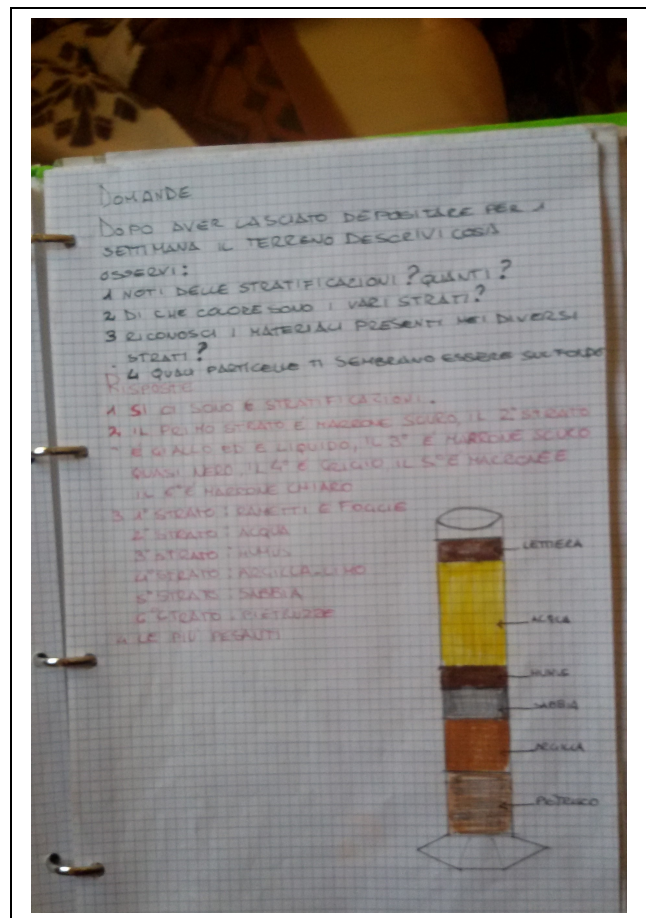 DOMANDE
DOPO AVER LASCIATO DEPOSITARE PER 1
SETTIMANA IL TERRENO DESCRIVI COSA
OSSERVI:
1 NOTI DELLE STRATIFICAZIONI? QUANTI?
2 DI CHE COLORE SONO I VARI STRATI?
3 RICONOSCI I MATERIALI PRESENTI NEI DIVERSI
STRATI?
4 QUALI PARTICELLE TI SEMBRANO ESSERE SUL FONDO
RISPOSTE
1 SI CI SONO 6 STRATIFICAZIONI.
2 IL PRIMO STRATO È MARRONE SCURO, IL 2° STRATO
È GIALLO ED È LIQUIDO, IL 3° È MARRONE SCURO
QUASI NERO, IL 4° È GRIGIO, IL 5° È MARRONE E
IL 6° È MARRONE CHIARO
3 1° STRATO: RAMETTI E FOGLIE
2° STRATO: ACQUA
3° STRATO: HUMUS
4° STRATO: ARGILLA-LIMO
5° STRATO: SABBIA
6° STRATO: PIETRUZZE
4 LE PIÙ PESANTI
LETTIERA
ACQUA
HUMUS
SABBIA
ARGILLA